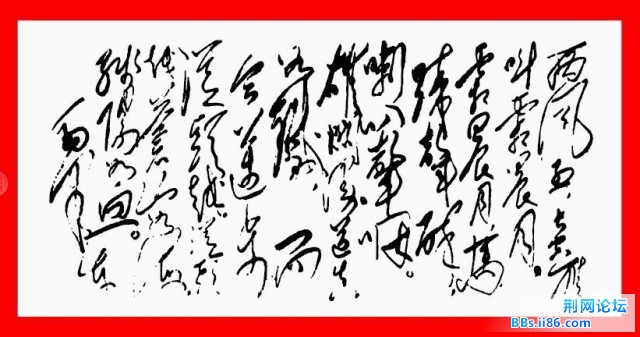 西风烈,长空雁
叫霜晨月。
霜晨月,马
蹄声碎,
喇叭声咽。
雄关漫道真
如铁,而
今迈步
从头越。从头
越,苍山如海,
残阳如血。
荆网论坛
BBs.ii86.com